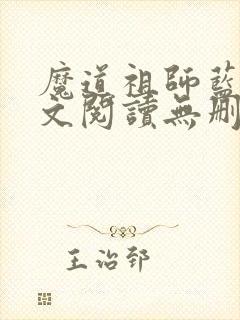 魔道祖師藍
文閱讀無刪
王治郅